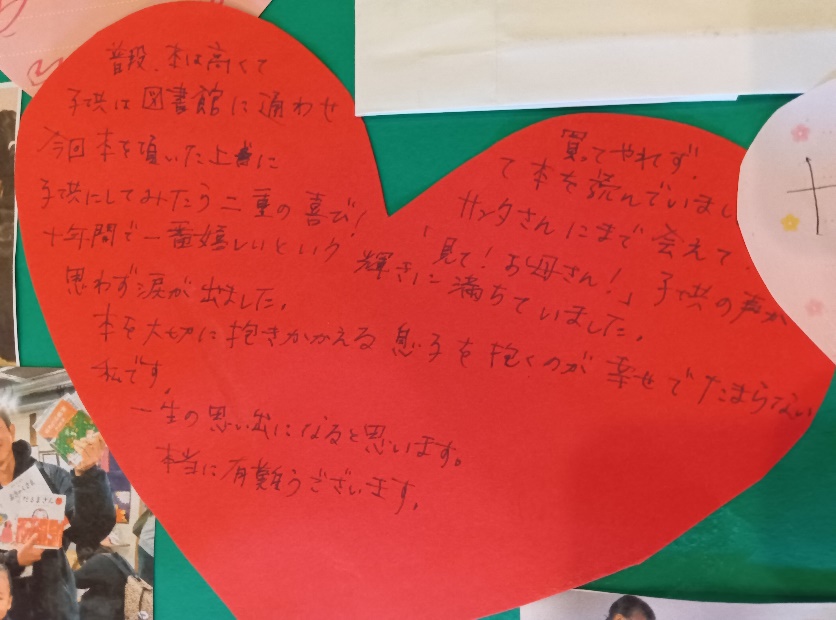 普段、本は高くて 買ってやれず、
子供は図書館に通わせ て本を読んでいまし
今回本を頂いた上に サンタさんにまで会えて、
子供にしてみたら二重の喜び! 「見て!お母さん!」子供の声が
十年間で一番嬉しいという 輝きに満ちていました。
思わず涙が出ました。
本を大切に抱きかかえる息子を抱くのが幸せでたまらない
私です。
一生の思い出になると思います。
本当に有難うございます。
だるまさん